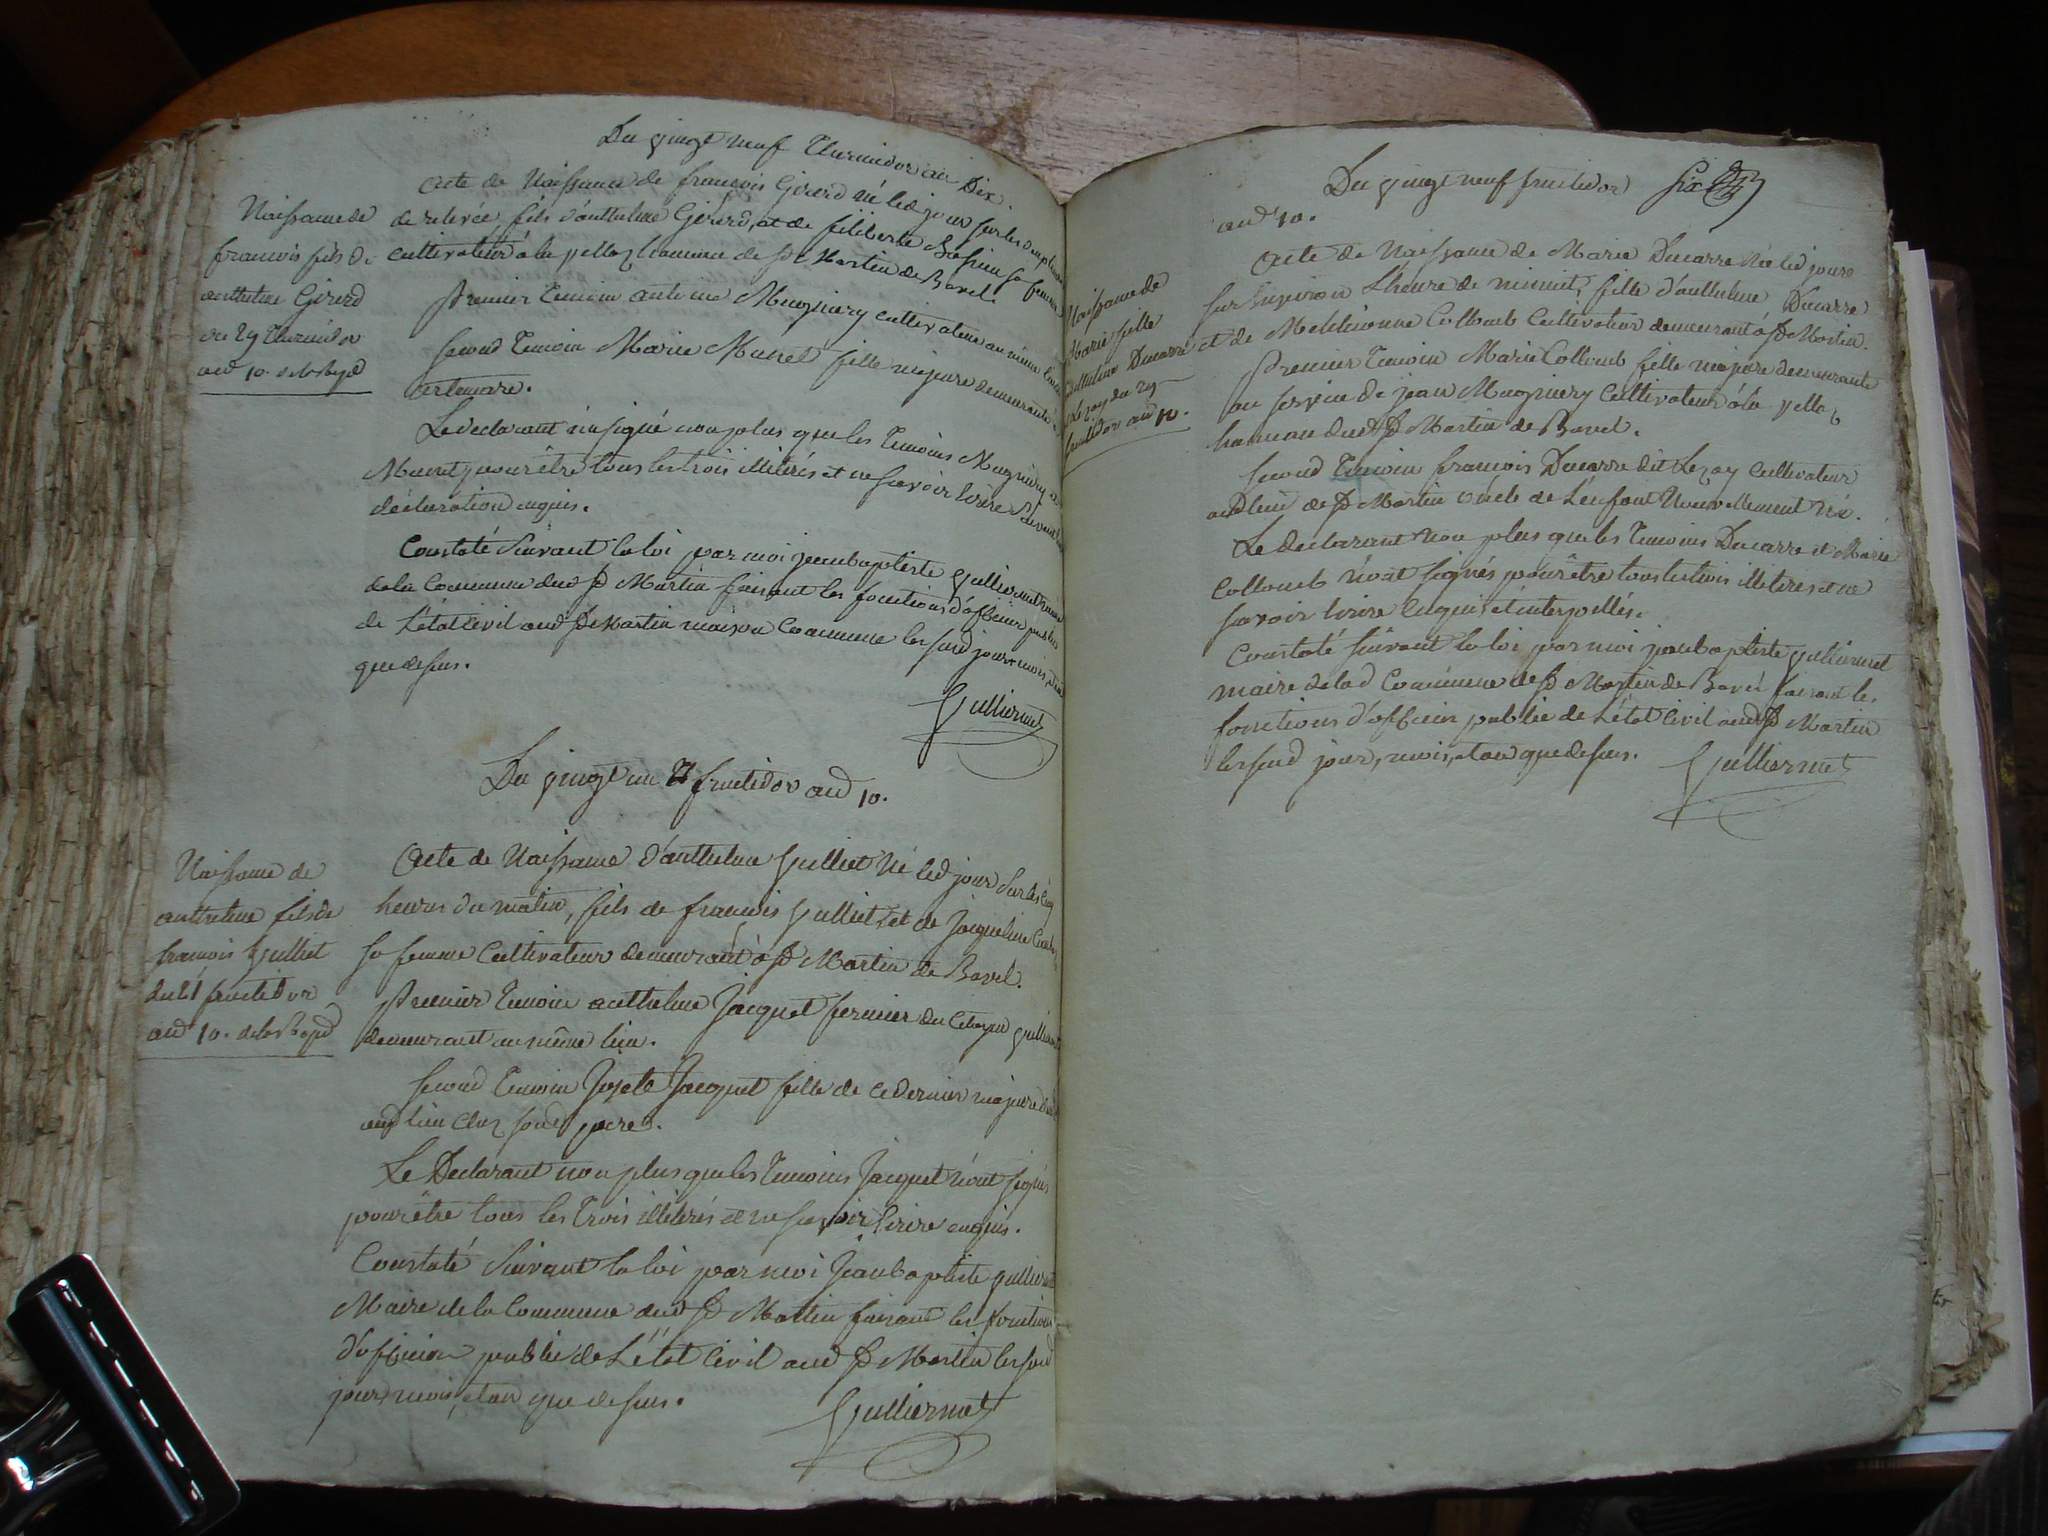 Du vingt neuf Thermidor an Dix.
Acte de Naissance de françois Girerd né led jour sur les
de relevée, fils d'anthelme Girerd, et de filiberte sa femme
cultivateur à la commune de St Martin de Bavel.
Naissance de
françois fils de
anthelme Girerd
du 29 Thermidor
an 10. de la Repd
Premier Temoin Mugniery cultivateur au même lieu
Second Temoin Marie fille majeure demeurante à
artemare.
Le declarant n'a signé non plus que les Temoins Mugniery et
pour être tous les trois illiterés et ne savoir Ecrire
déclaration enquis.
Constaté Suivant la loi par moi jeanbaptiste Gulliermet maire
de la Commune dud St Martin faisant les fonctions d'officier public
de L'état Civil aud St Martin maison Commune les sud jour, mois, et an
que dessus.
Gulliermet
Du vingt un fructidor an 10.
Naissance de
anthelme fils de
francois Gulliet
du 21 fructidor
an 10. de la Repd
Acte de Naissance d'anthelme Gulliet Né led jour Sur les cinq
heures du matin, fils de francois Gulliet, et de Jacqueline
sa femme Cultivateur demeurant à St Martin de Bavel.
Premier Temoin anthelme Jacquet fermier du Citoyen
demeurant au même lieu.
Second Temoin Josete Jacquet fille de ce dernier majeure
aud lieu chez sond pere.
Le Declarant non plus que les Temoins Jacquet n'ont signés
pour être tous les Trois illiterés et ne savoir Ecrire enquis.
Constaté Suivant la loi par moi Jeanbaptiste Gulliermet
Maire de la Commune dud St Martin faisant les fonctions
d'officier public de L'état Civil aud St Martin les sud
jour, mois, et an que dessus.
Gulliermet
Du vingt neuf fructidor six
an 10.
Naissance de
Marie fille
anthelme Ducarre
Lezay du 29
fructidor an 10.
Acte de Naissance de Marie Ducarre Née led jour
sur environ L'heure de minuit, fille d'anthelme Ducarre
et de Collomb Cultivateur demeurant à St Martin.
Premier Temoin Marie Collomb fille majeure demeurante
au service de jean Mugniery Cultivateur à la
hameau dud St Martin de Bavel.
Second Temoin francois Ducarre dit Lezay cultivateur
aud lieu de St Martin oncle de L'enfant Nouvellement Né.
Le declarant non plus que les Temoins Ducarre et Marie
Collomb n'ont signés pour être tous les trois illiterés et ne
savoir Ecrire Enquis et interpellés.
Constaté suivant la loi par moi jeanbaptiste Gulliermet
maire de lad Commune de St Martin de Bavel faisant les
fonctions d'officier public de L'état Civil aud St Martin
les sud jour, mois, et an que dessus.
Gulliermet